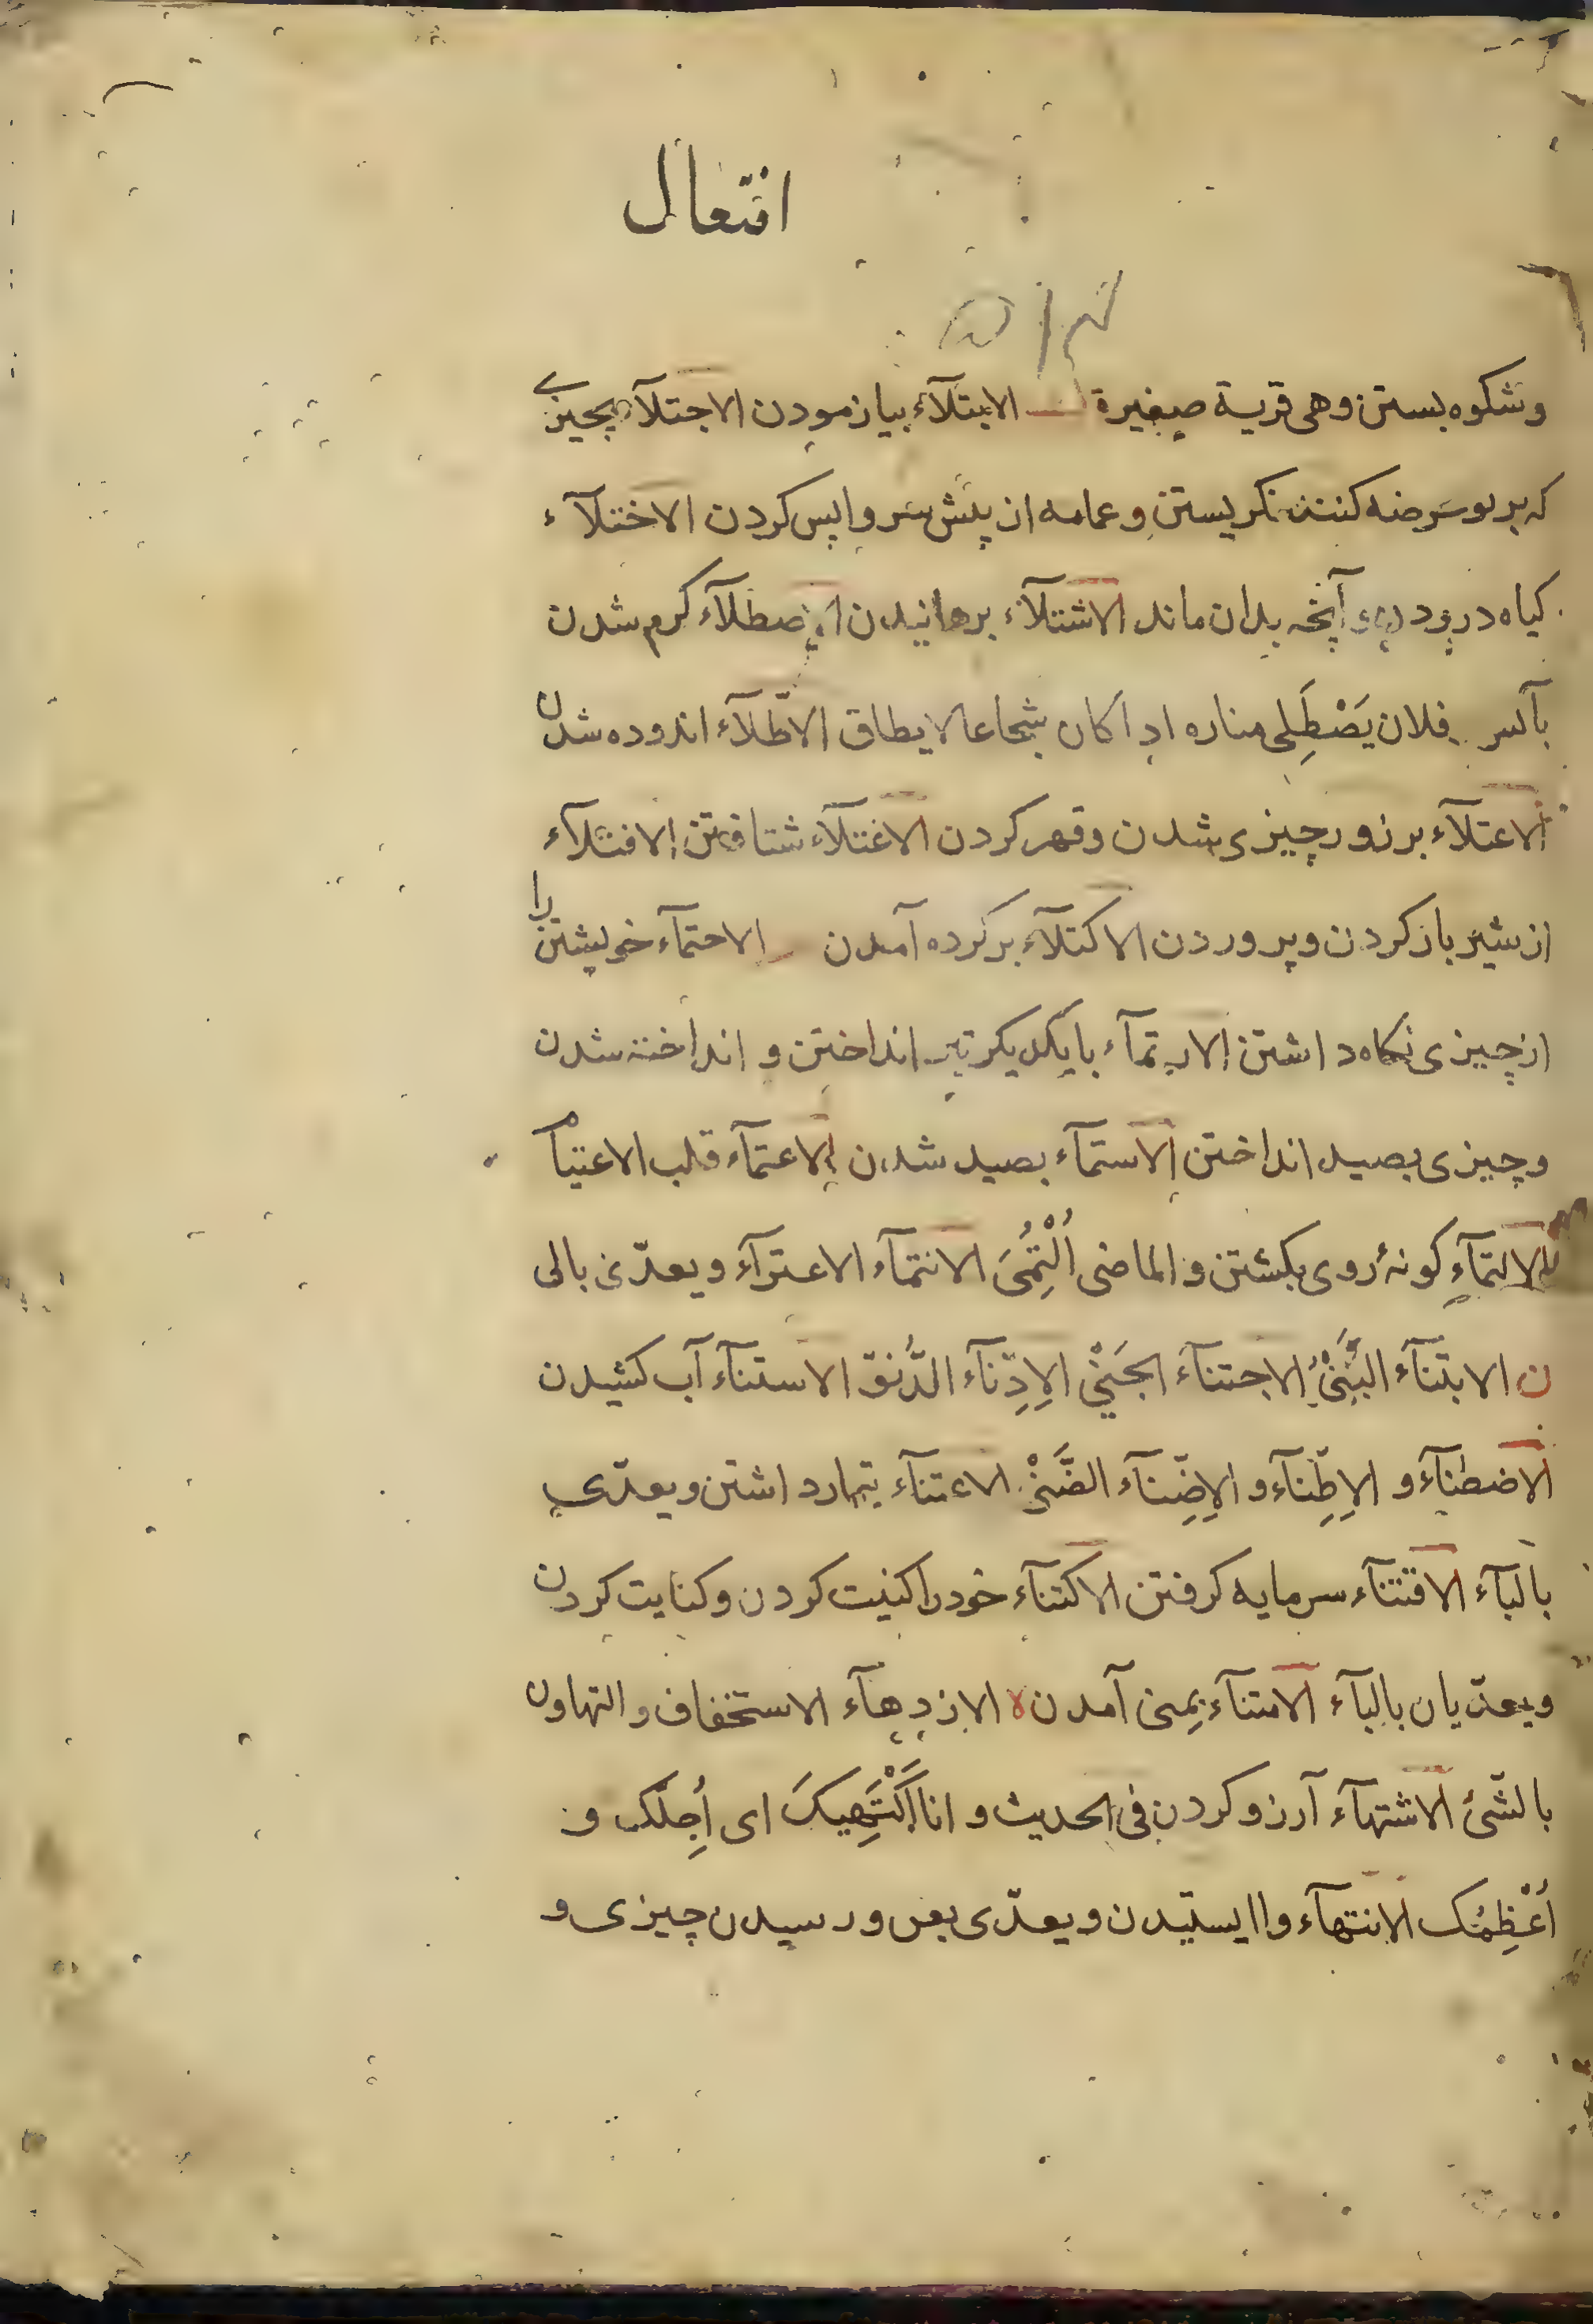 افتعال
وشکوه بستن وهی قریة صغیرة الابتلآء بیازمودن الاجتلآء بچیزی
که بر تو عرضه کنند نکریستن و عمامه از پیش سر واپس کردن الاختلآء
کیاه درودن و آنچه بدان ماند الاشتلآء برهانیدن الاصطلآء کرم شدن
بآتش فلان یَصْطَلِی بناره اذا کان شجاعا لا یطاق الاطّلآء اندوده شدن
الاعتلآء بر زور چیزی شدن وقهر کردن الاغتلآء شتافتن الافتلآء
از شیر باز کردن وپروردن الاکتلآء بر کرده آمدن الاحتمآء خویشتن را
از چیزی نکاه داشتن الارتمآء بایکدیکر تیر انداختن و انداخته شدن
وچیزی بصید انداختن الاستمآء بصید شدن الاعتمآء قلب الاعتیام
الالتمآء کونهٔ روی بکشتن و الماضی اُلْتُمِیَ الانتمآء الاعتزآء ویعدّی بالی
ن الابتنآء البَنْیُ الاجتنآء الجَنْیُ الاِدِّنآء الدُّنوّ الاستنآء آب کشیدن
الاضطنآء و الاِطِّنآء و الاِضِّنآء الضَّنْیُ الاعتنآء تیمار داشتن ویعدّی
بالبآء الاقتنآء سرمایه کرفتن الاکتنآء خود را کنیت کردن وکنایت کردن
ویعدّیان بالبآء الامتنآء بمِنی آمدن ه الازدهآء الاستخفاف والتهاون
بالشّیٔ الاشتهآء آرزو کردن فی الحدیث و انا اَکْتَهِیکَ ای اُجِلّک و
اُعْظِمُک الانتهآء واایستیدن ویعدّی بعن ورسیدن چیزی و